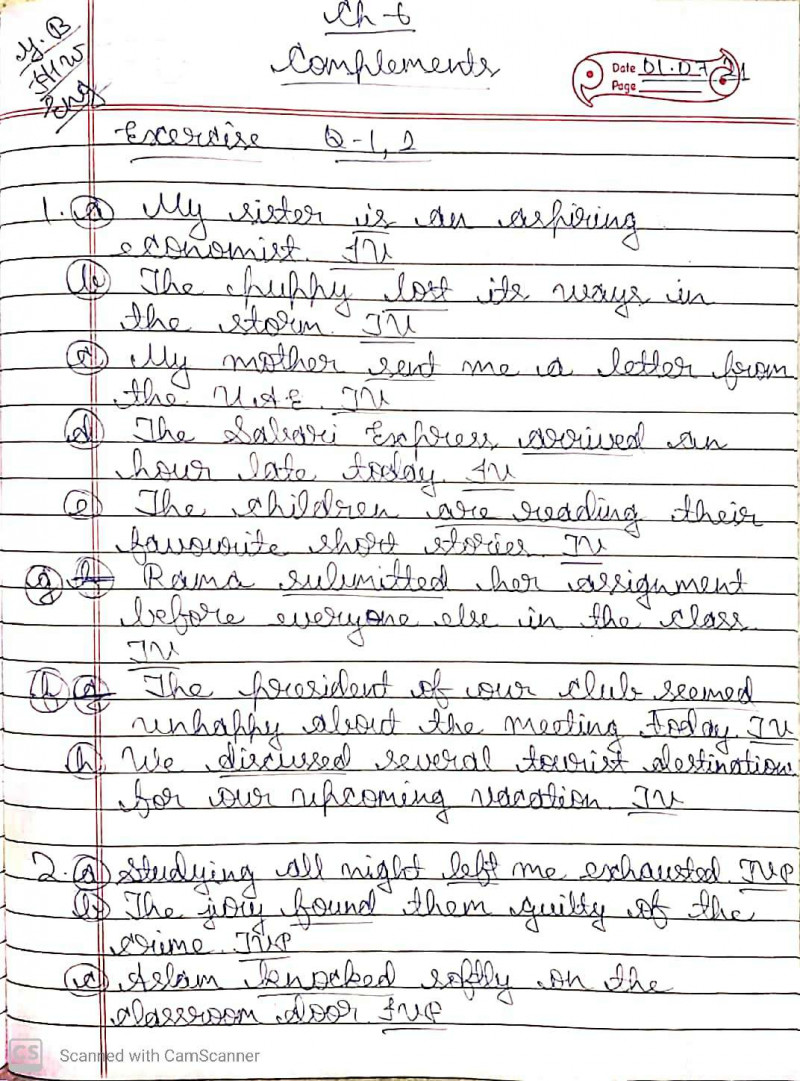 Ch-6
Complements
Y.B
H.W
Eng
Date 01.07.21
Page
Excercise Q-1, 2
1. (a) My sister is an aspiring
economist. IV
(b) The puppy lost its ways in
the storm. TV
(c) My mother sent me a letter from
the U.A.E. TV
(d) The Sabari Express arrived an
hour late today. IV
(e) The children are reading their
favourite short stories. TV
(g) Rama submitted her assignment
before everyone else in the class.
TV
(f) The president of our club seemed
unhappy about the meeting today. IV
(h) We discussed several tourist destination
for our upcoming vacation. TV
2. (a) Studying all night left me exhausted. TVP
(b) The jury found them guilty of the
crime. TVP
(c) Aslam knocked softly on the
classroom door. IVP
CS Scanned with CamScanner